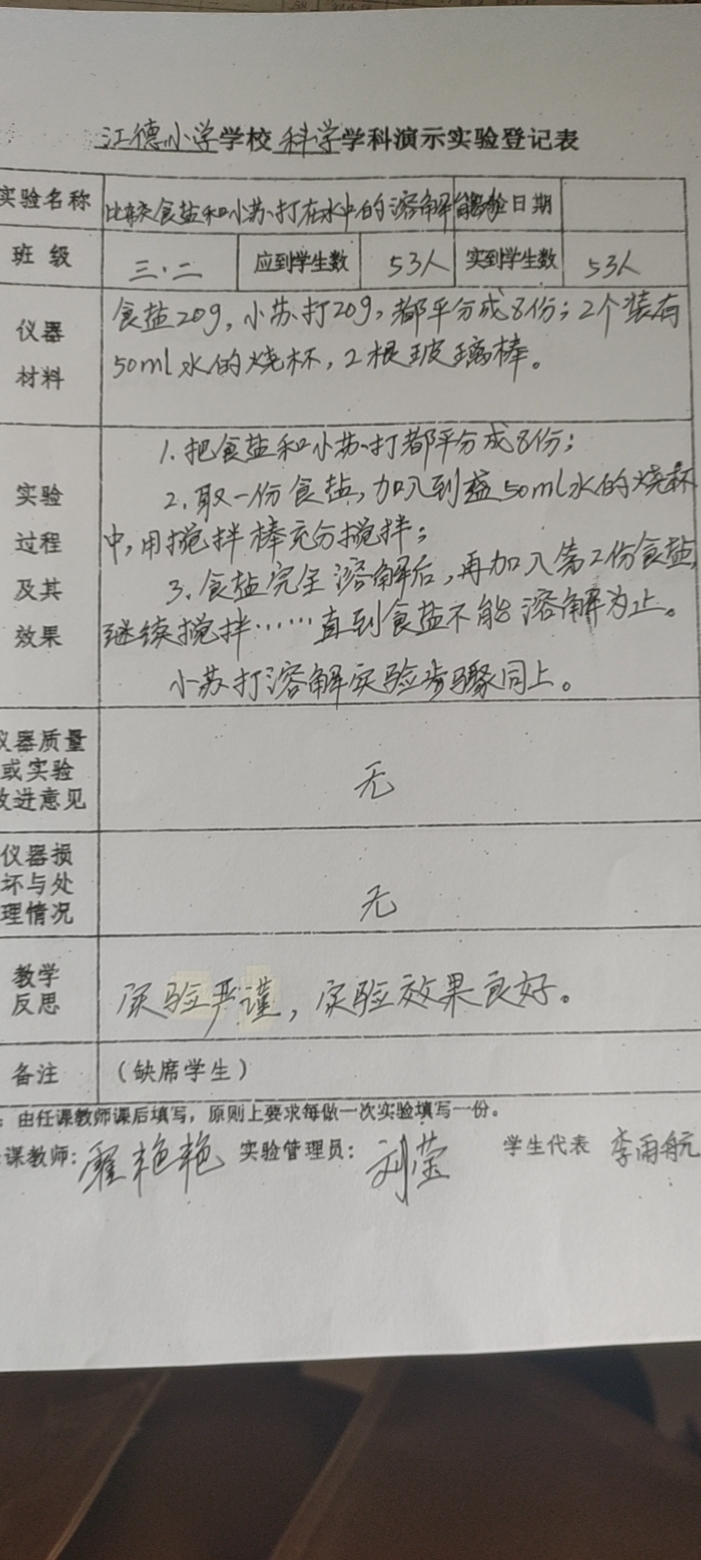 江德小学学校 科学学科演示实验登记表
实验名称 比较食盐和小苏打在水中的溶解能力 日期
班 级 三.二 应到学生数 53人 实到学生数 53人
仪器 食盐20g,小苏打20g,都平分成8份;2个装有
材料 50ml水的烧杯,2根玻璃棒。
1.把食盐和小苏打都平分成8份;
实验 2.取一份食盐,加入到盛50ml水的烧杯
过程 中,用搅拌棒充分搅拌;
及其 3.食盐完全溶解后,再加入第2份食盐,
效果 继续搅拌……直到食盐不能溶解为止。
小苏打溶解实验步骤同上。
仪器质量
或实验 无
改进意见
仪器损
坏与处 无
理情况
教学
反思 实验严谨,实验效果良好。
备注 (缺席学生)
:由任课教师课后填写,原则上要求每做一次实验填写一份。
课教师: 艳艳 实验管理员: 刘莹 学生代表 李雨航